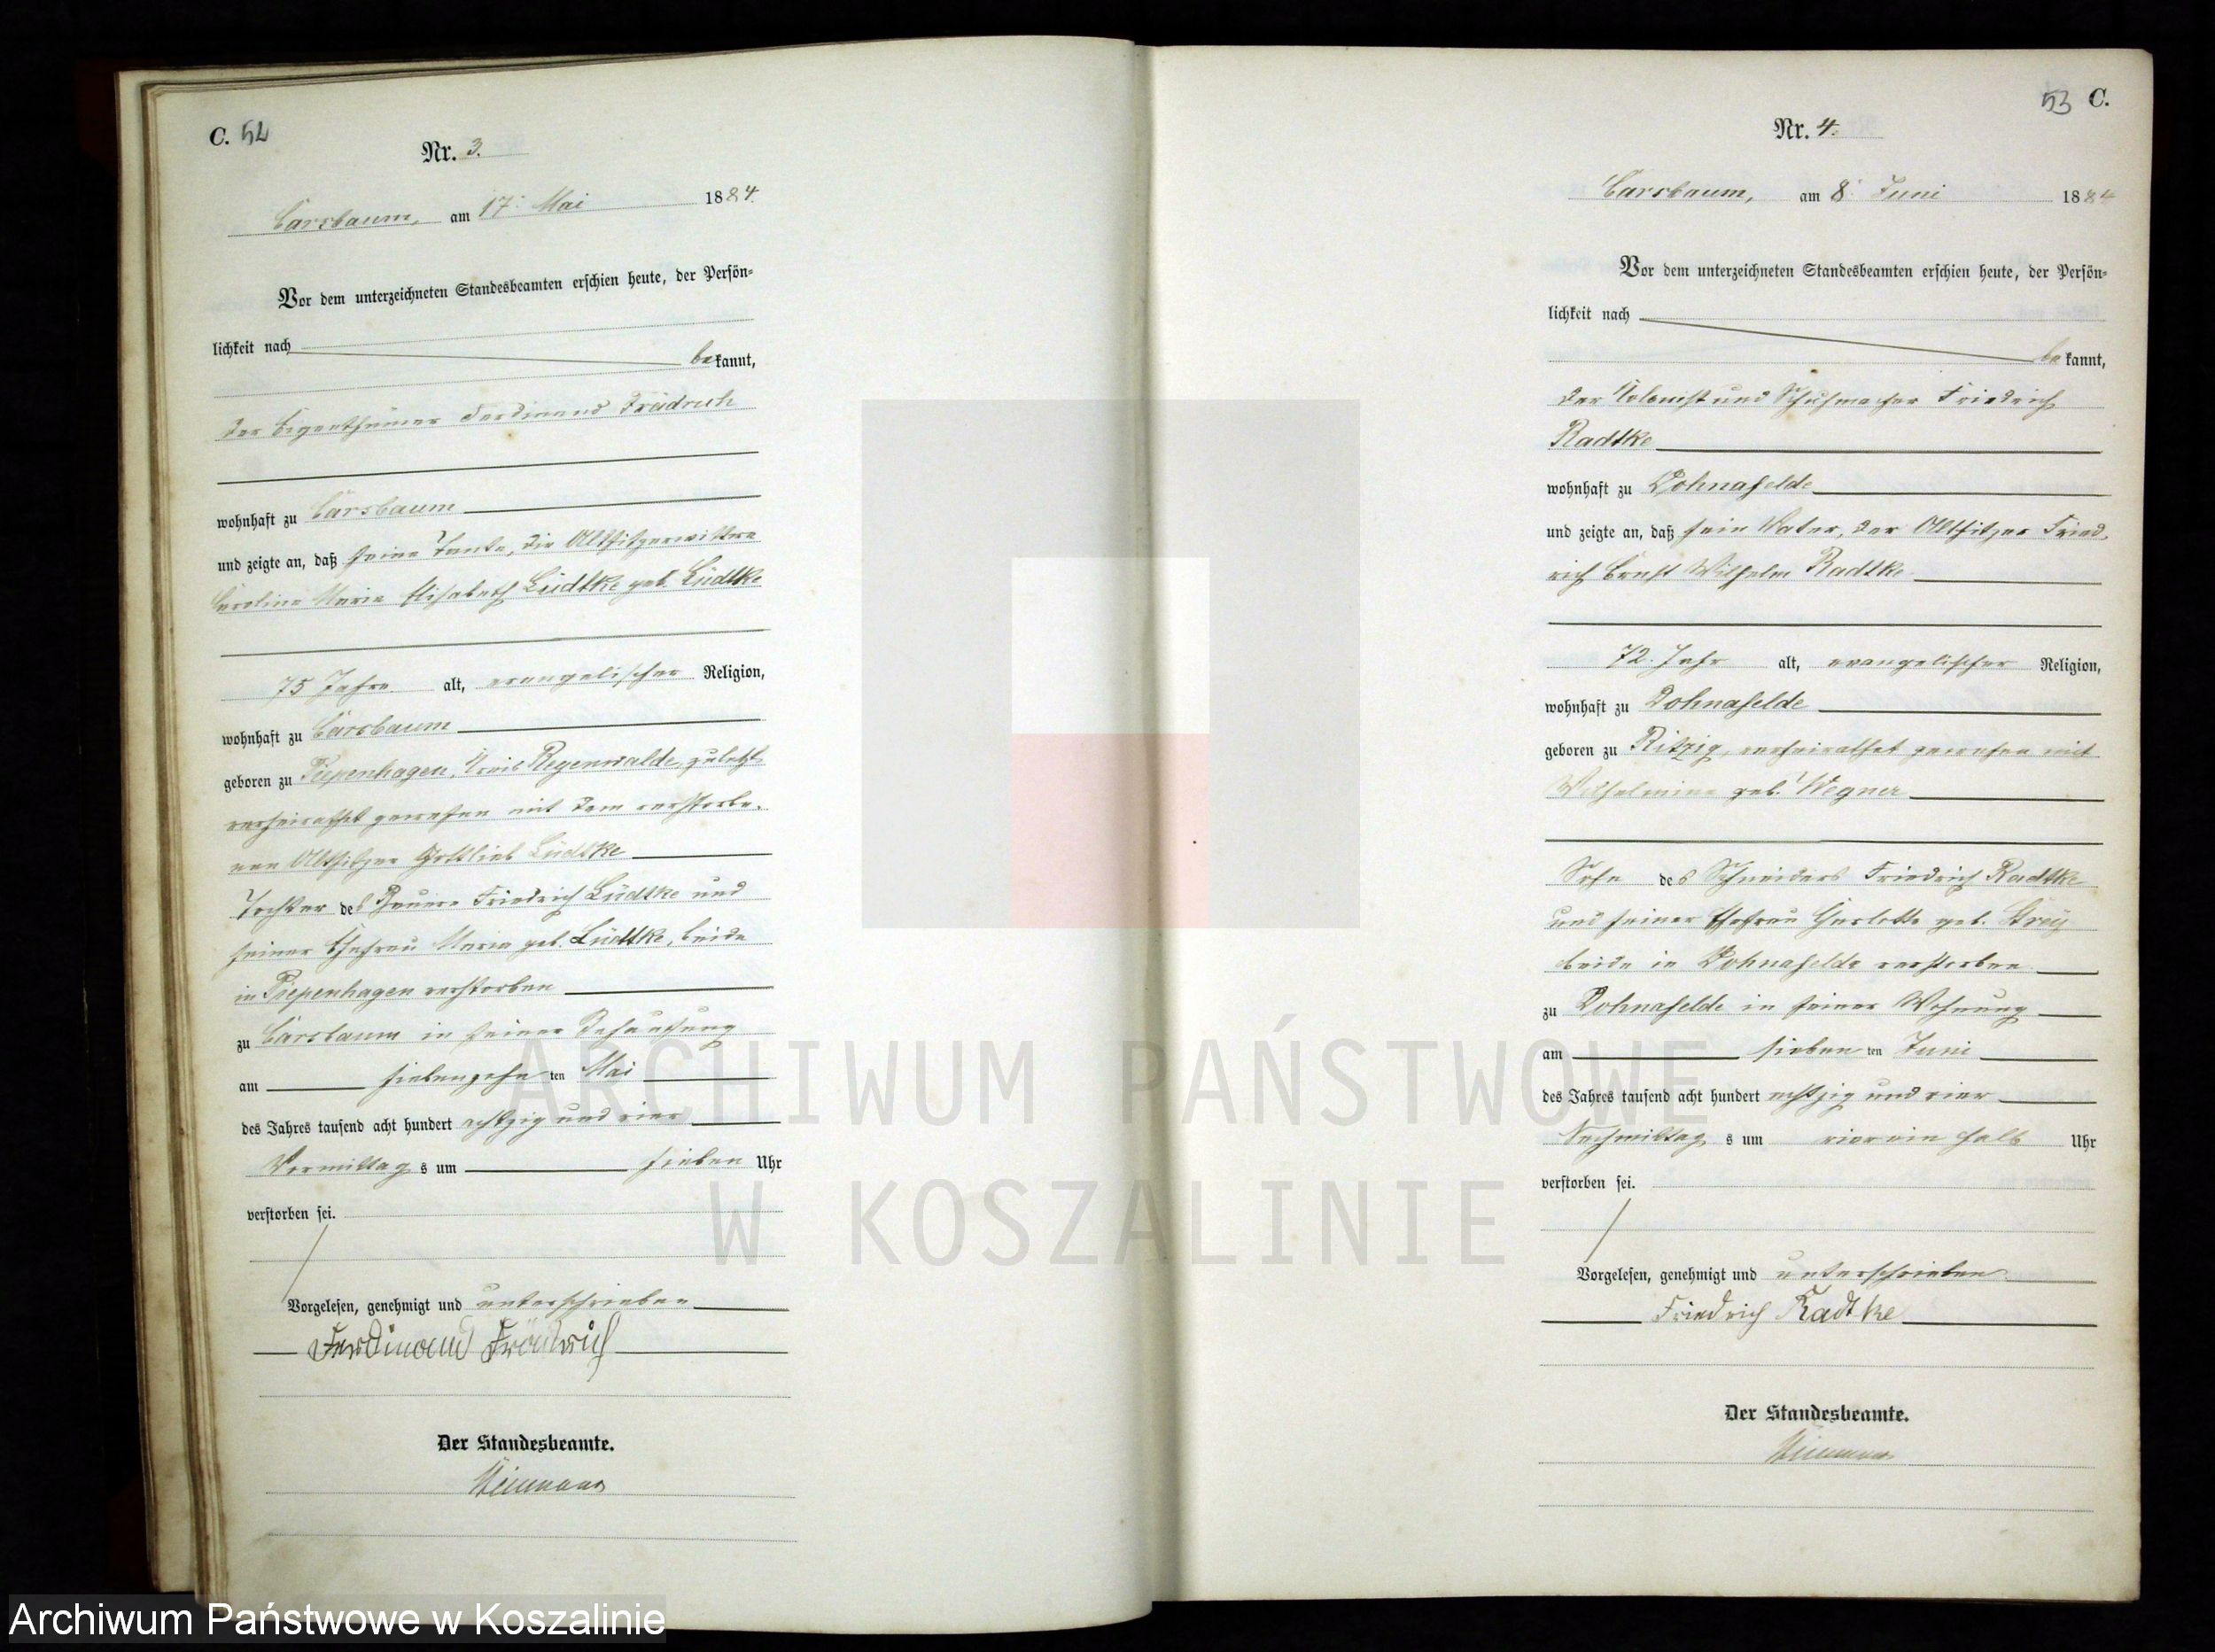 C. 52
Nr. 3.
Carsbaum, am 17. Mai 1884.
Vor dem unterzeichneten Standesbeamten erschien heute, der Persön-
lichkeit nach
bekannt,
der Eigenthümer Ferdinand Frädrich
wohnhaft zu Carsbaum
und zeigte an, daß seine Tante, die Altsitzerwittwe
Caroline Marie Elisabeth Lüdtke geb. Lüdtke
75 Jahre alt, evangelischer Religion,
wohnhaft zu Carsbaum
geboren zu Piepenhagen, Kreis Regenwalde, zuletzt
verheirathet gewesen mit dem verstorbe-
nen Altsitzer Gottlieb Lüdtke
Tochter des Bauern Friedrich Lüdtke und
seiner Ehefrau Marie geb. Lüdtke, beide
in Piepenhagen verstorben
zu Carsbaum in seiner Behausung
am siebenzehn ten Mai
des Jahres tausend acht hundert achtzig und vier
Vormittag s um sieben Uhr
verstorben sei.
Vorgelesen, genehmigt und unterschrieben
Ferdinand Frädrich
Der Standesbeamte.
53 C.
Nr. 4.
Carsbaum, am 8. Juni 1884
Vor dem unterzeichneten Standesbeamten erschien heute, der Persön-
lichkeit nach
bekannt,
der Kolonist und Schuhmacher Friedrich
Radtke
wohnhaft zu Dohnafelde
und zeigte an, daß sein Vater, der Altsitzer Fried-
rich Ernst Wilhelm Radtke
72 Jahr alt, evangelischer Religion,
wohnhaft zu Dohnafelde
geboren zu Ritzig, verheirathet gewesen mit
Wilhelmine geb. Wegner
Sohn des Schneiders Friedrich Radtke
und seiner Ehefrau Charlotte geb. Strey
beide in Dohnafelde verstorben
zu Dohnafelde in seiner Wohnung
am sieben ten Juni
des Jahres tausend acht hundert achtzig und vier
Nachmittag s um vier ein halb Uhr
verstorben sei.
Vorgelesen, genehmigt und unterschrieben
Friedrich Radtke
Der Standesbeamte.
ARCHIWUM PAŃSTWOWE
W KOSZALINIE
Archiwum Państwowe w Koszalinie